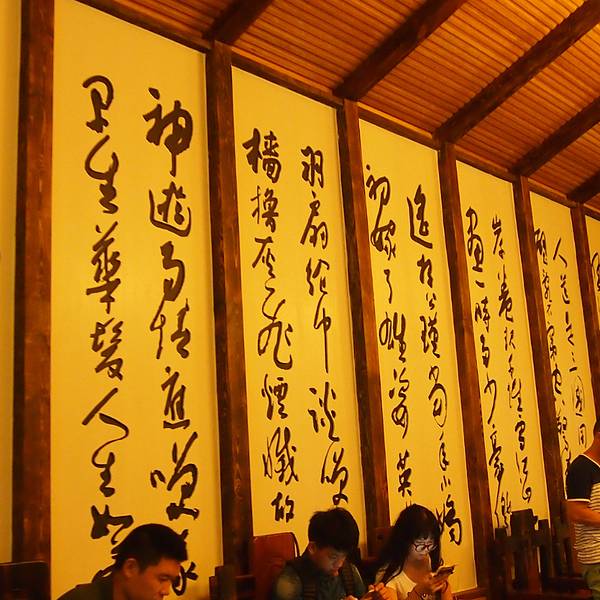 人道是三國周
岸卷起千堆雪江山
畫一時多少豪傑
遙想公瑾當年小喬
初嫁了雄姿英
羽扇綸巾談笑
檣櫓灰飛煙滅故
神遊多情應笑我
早生華髮人生如